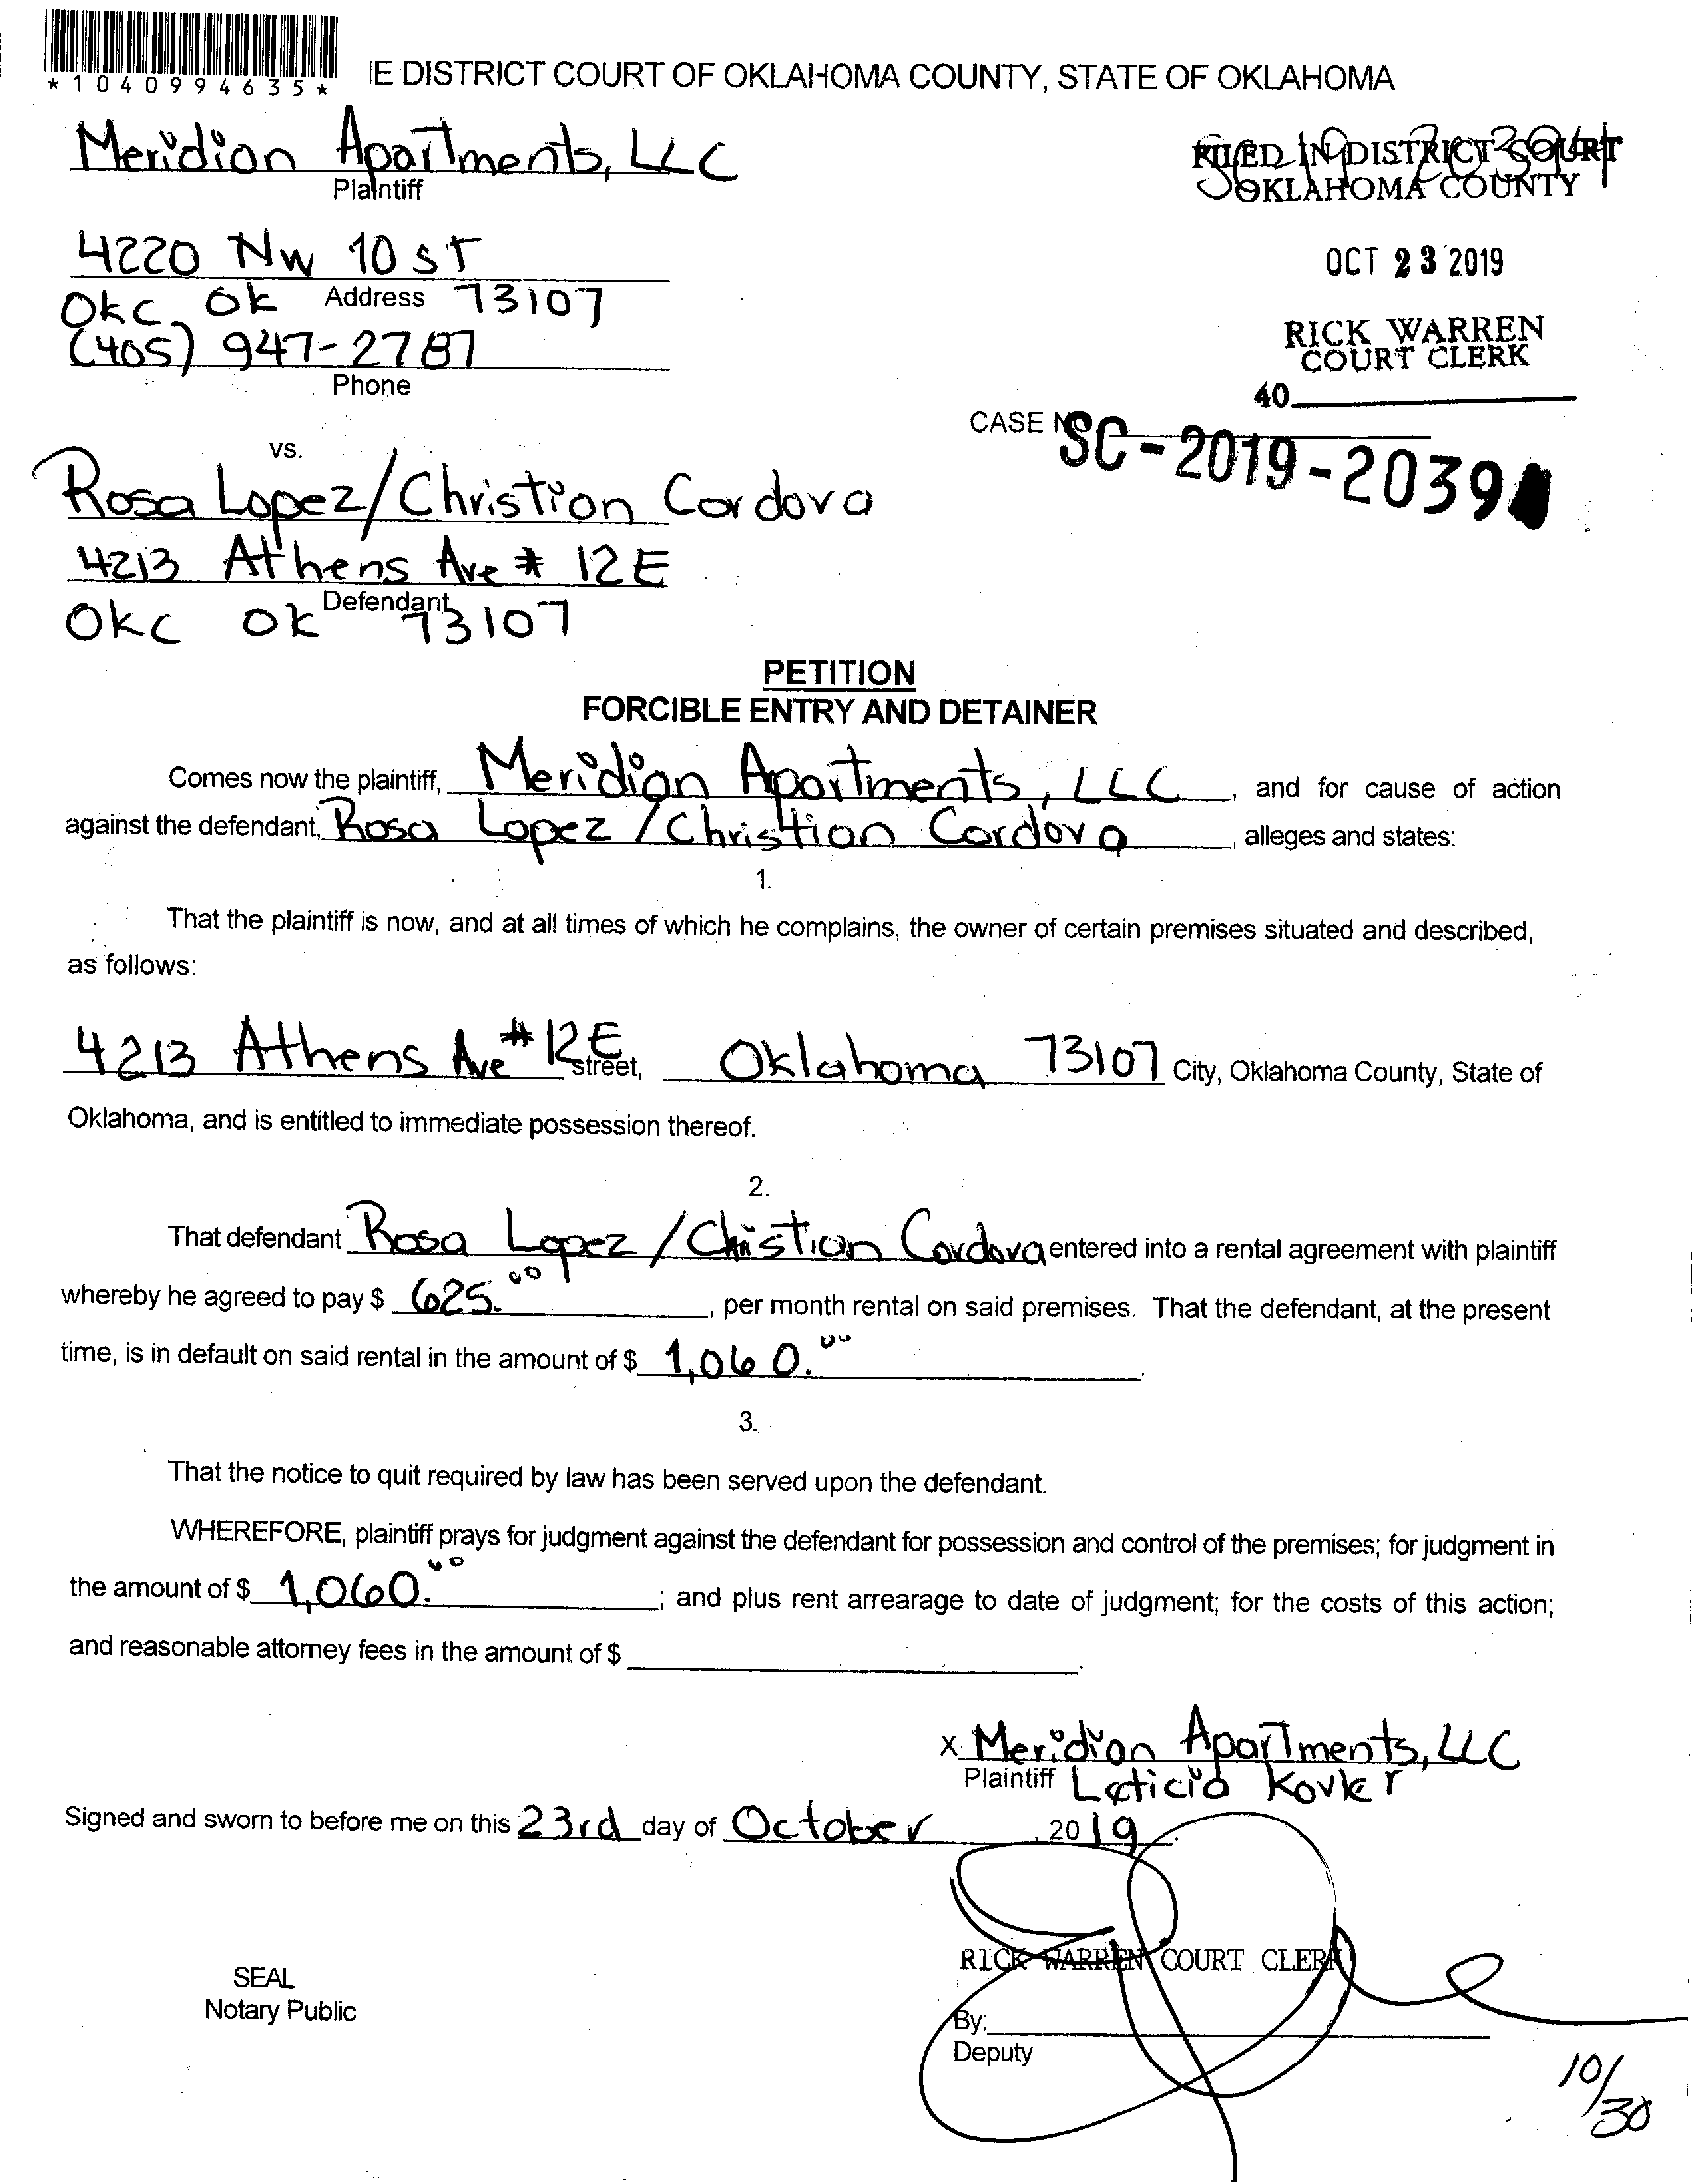 *1040994635*
IE DISTRICT COURT OF OKLAHOMA COUNTY, STATE OF OKLAHOMA
Meridian Apartments, LLC
Plaintiff
FILED IN DISTRICT COURT
OKLAHOMA COUNTY
4220 NW 10 ST
OCT 23 2019
Okc, Ok Address 73107
(405) 947-2787
Phone
RICK WARREN
COURT CLERK
40
CASE NO
SC-2019-2039
vs.
Rosa Lopez/Christian Cordova
4213 Athens Ave # 12E
Defendant
Okc Ok 73107
PETITION
FORCIBLE ENTRY AND DETAINER
Comes now the plaintiff, Meridian Apartments, LLC, and for cause of action
against the defendant, Rosa Lopez / Christian Cordova, alleges and states:
1.
That the plaintiff is now, and at all times of which he complains, the owner of certain premises situated and described,
as follows:
4213 Athens Ave #12E street, Oklahoma 73107 City, Oklahoma County, State of
Oklahoma, and is entitled to immediate possession thereof.
2.
That defendant Rosa Lopez / Christian Cordova entered into a rental agreement with plaintiff
whereby he agreed to pay $ 625.00, per month rental on said premises. That the defendant, at the present
time, is in default on said rental in the amount of $ 1,060.00.
3.
That the notice to quit required by law has been served upon the defendant.
WHEREFORE, plaintiff prays for judgment against the defendant for possession and control of the premises; for judgment in
the amount of $ 1,060.00; and plus rent arrearage to date of judgment; for the costs of this action;
and reasonable attorney fees in the amount of $ .
x Meridian Apartments, LLC
Plaintiff Leticia Kovker
Signed and sworn to before me on this 23rd day of October, 2019.
RICK WARREN COURT CLERK
SEAL
Notary Public
By:
Deputy
10/30